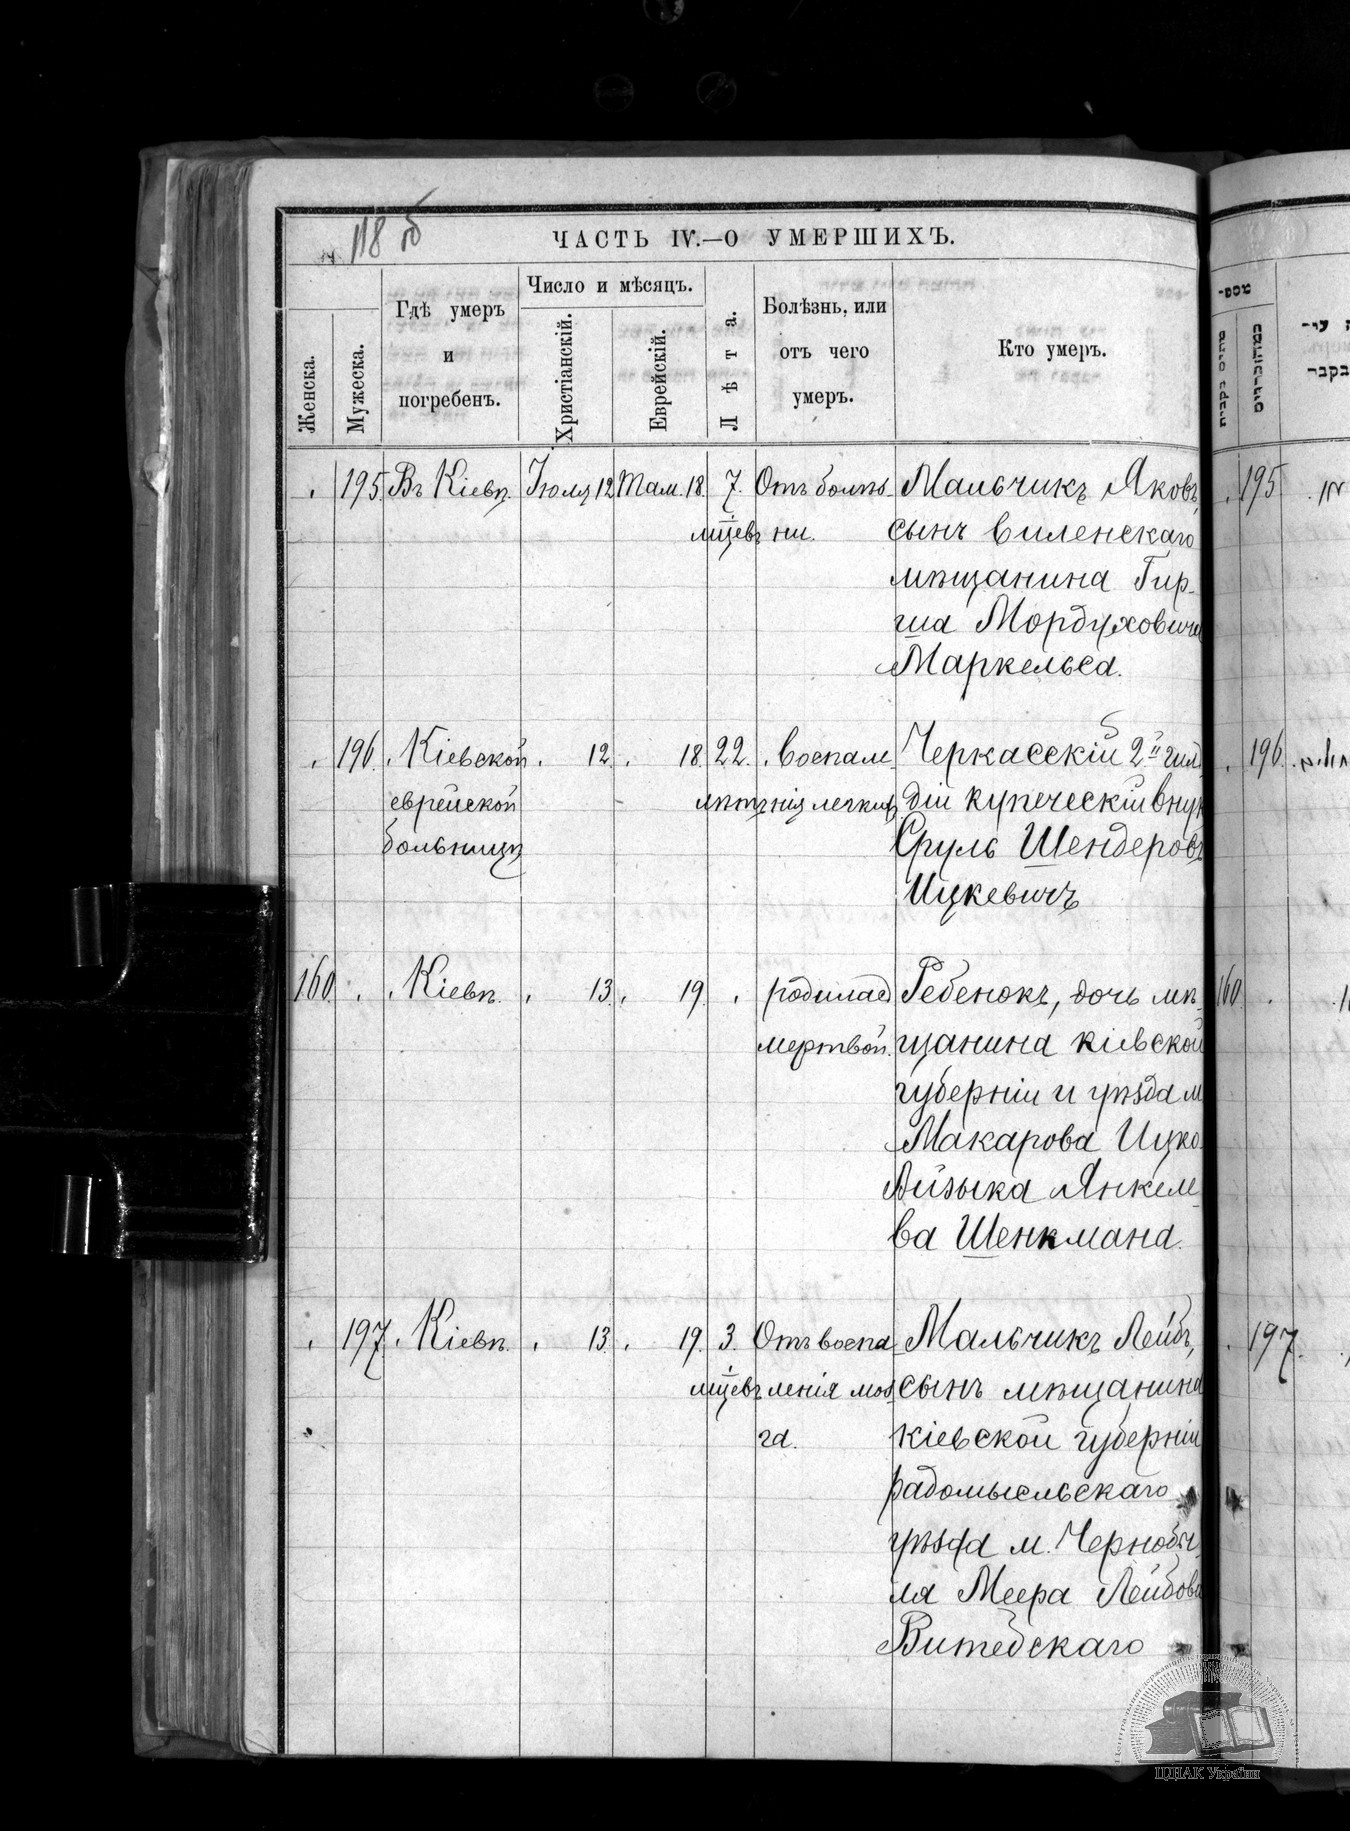 118 об
ЧАСТЬ IV.—О УМЕРШИХЪ.
Женска.
Мужеска.
Гдѣ умеръ
и
погребенъ.
Число и мѣсяцъ.
Христіанскій.
Еврейскій.
Лѣта.
Болѣзнь, или
отъ чего
умеръ.
Кто умеръ.
195. Въ Кіевѣ. Іюля 12. Там. 18. 7. Отъ болѣз- Мальчикъ Яковъ,
мѣсяцевъ ни. сынъ виленскаго
мѣщанина Гир-
ша Мордуховича
Маркельса.
196. Кіевской 12. 18. 22. воспал- Черкасскій 2й гил
еврейской лѣтъ нія легкихъ діи купеческій внук
больницѣ Сруль Шендеровъ
Ицкевичъ
160. Кіевѣ. 13. 19. родилась Ребенокъ, дочь мѣ-
мертвой. щанина кіевской
губерніи и уѣзда м
Макарова Ицко
Айзыка Янкеле-
ва Шенкмана.
197. Кіевѣ. 13. 19. 3. Отъ воспа- Мальчикъ Лейбъ,
мѣсяцевъ ленія моз- сынъ мѣщанина
га. кіевской губерніи
радомысльскаго
уѣзда м. Чернобы-
ля Меера Лейбова
Витебскаго
מספר
195
196
160
197
ЦДІАК України